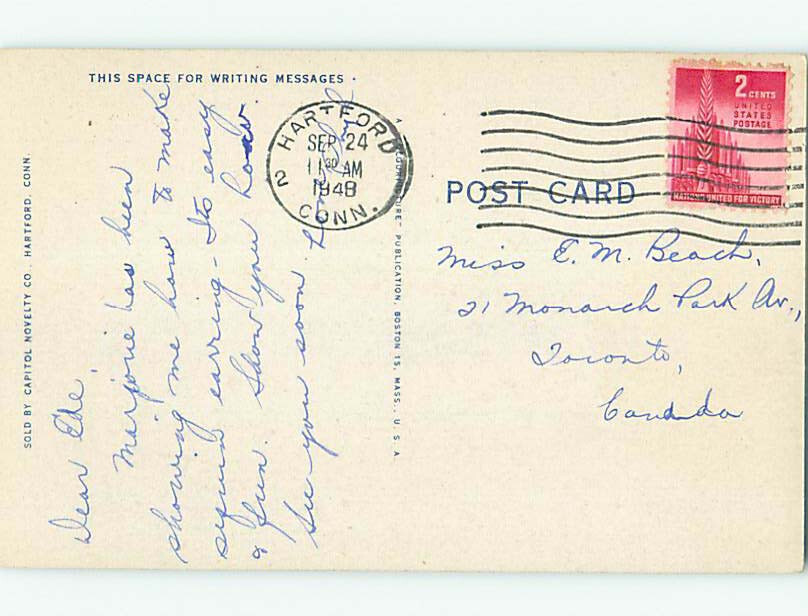 THIS SPACE FOR WRITING MESSAGES
SOLD BY CAPITOL NOVELTY CO., HARTFORD, CONN.
Dear Ede,
Marjorie has been
showing me how to make
sequin earring - Its easy
& fun. Show you how.
See you soon
PUBLICATION, BOSTON 15, MASS., U.S.A.
HARTFORD
SEP 24
11 30 AM
1948
2
CONN.
2 CENTS
UNITED
STATES
POSTAGE
NATIONS UNITED FOR VICTORY
POST CARD
Miss E. M. Beach,
21 Monarch Park Av.,
Toronto,
Canada